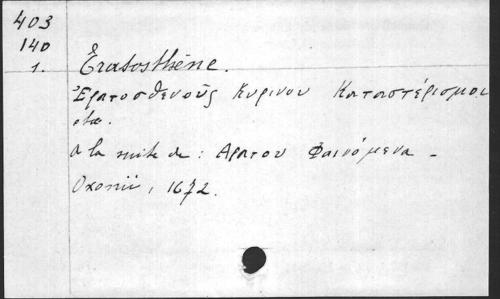 403
140
1. Ératosthène.
Ἐρατοσθενοῦς Κυρινου Καταστέρισμοι
etc.
à la suite de : Αρατου Φαινόμενα -
Oxonii, 1672.